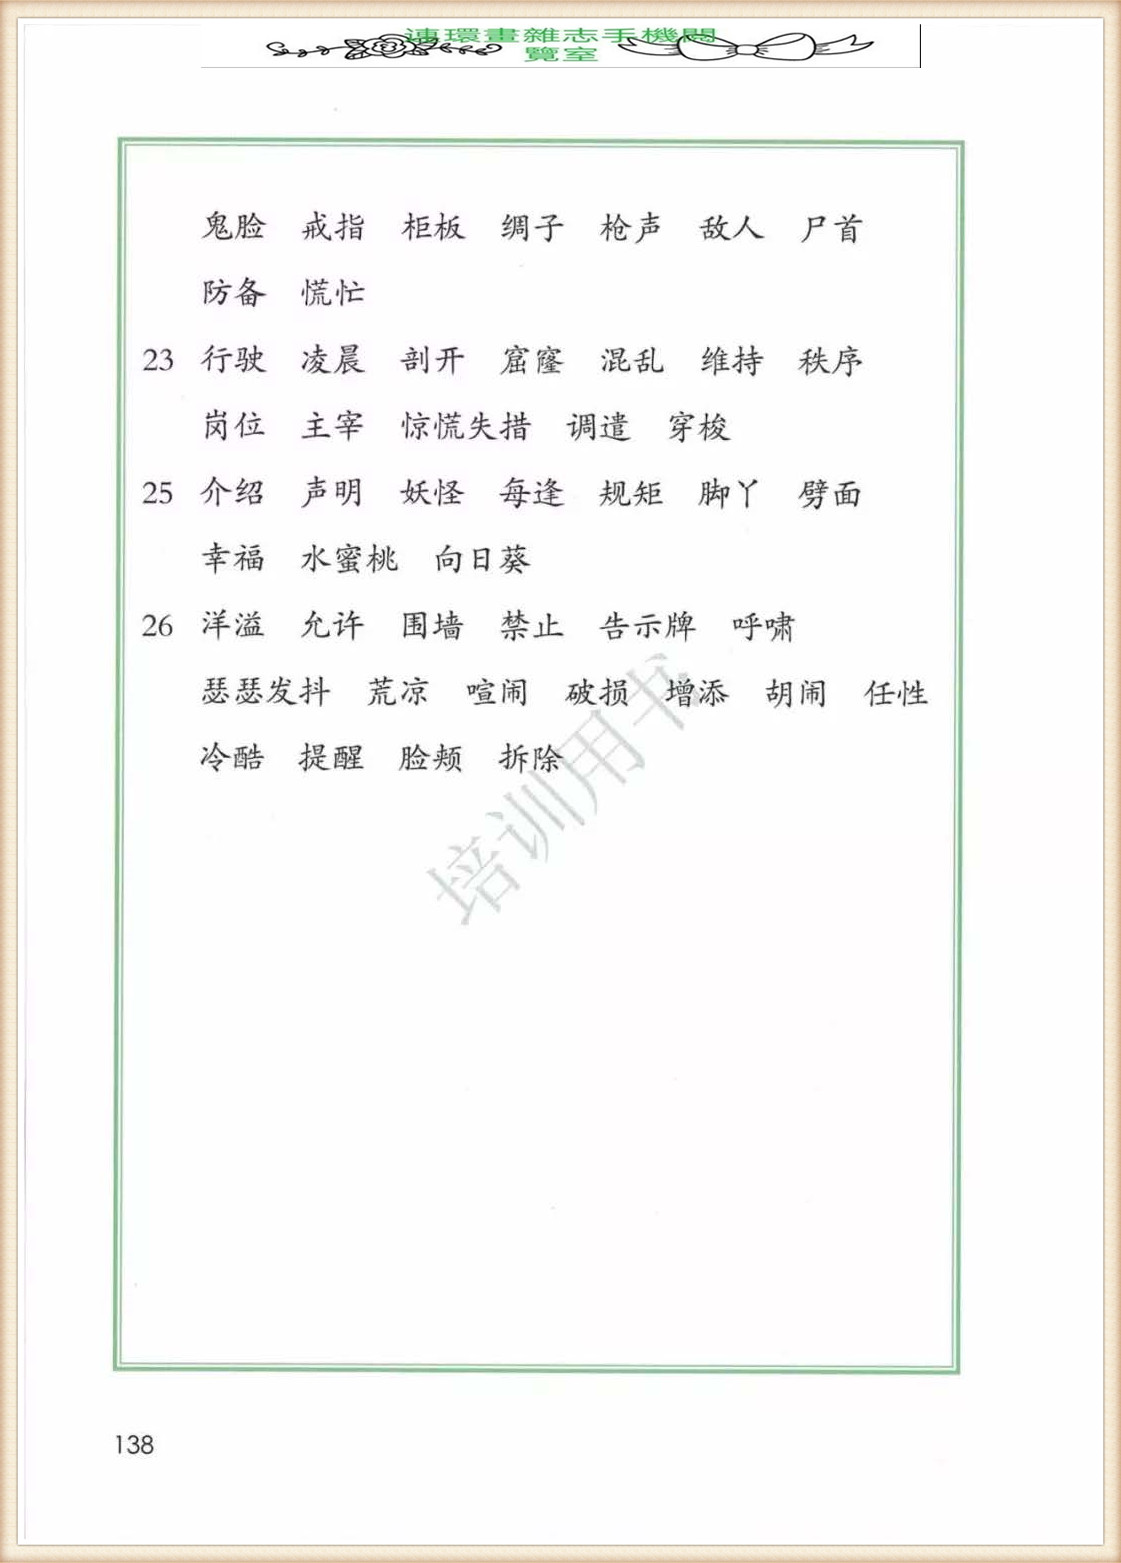 連環畫雜志手機閱
覽室
鬼脸 戒指 柜板 绸子 枪声 敌人 尸首
防备 慌忙
23 行驶 凌晨 剖开 窟窿 混乱 维持 秩序
岗位 主宰 惊慌失措 调遣 穿梭
25 介绍 声明 妖怪 每逢 规矩 脚丫 劈面
幸福 水蜜桃 向日葵
26 洋溢 允许 围墙 禁止 告示牌 呼啸
瑟瑟发抖 荒凉 喧闹 破损 增添 胡闹 任性
冷酷 提醒 脸颊 拆除
培训用书
138